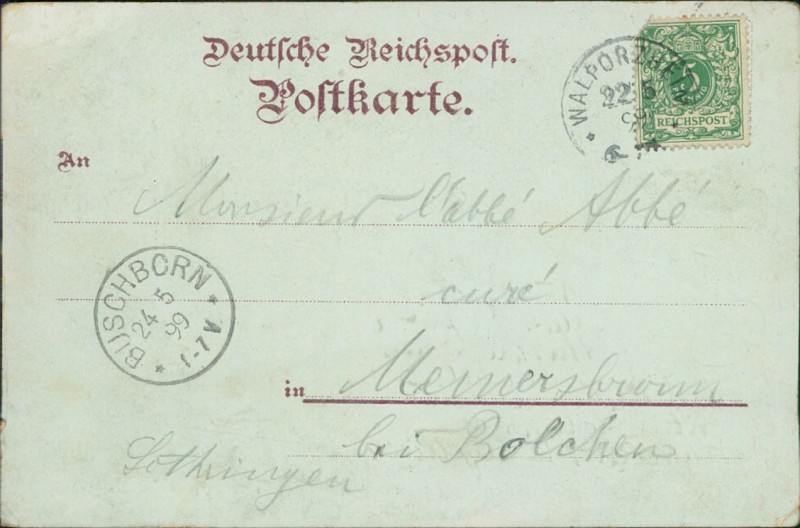 Deutsche Reichspost.
Postkarte.
WALPORZHEIM
22 5
99
5
REICHSPOST
An
Monsieur l'abbé Abbé
curé
BUSCHBORN
24 5
99
-7 V
in Memersbronn
bei Bolchen
Lothringen